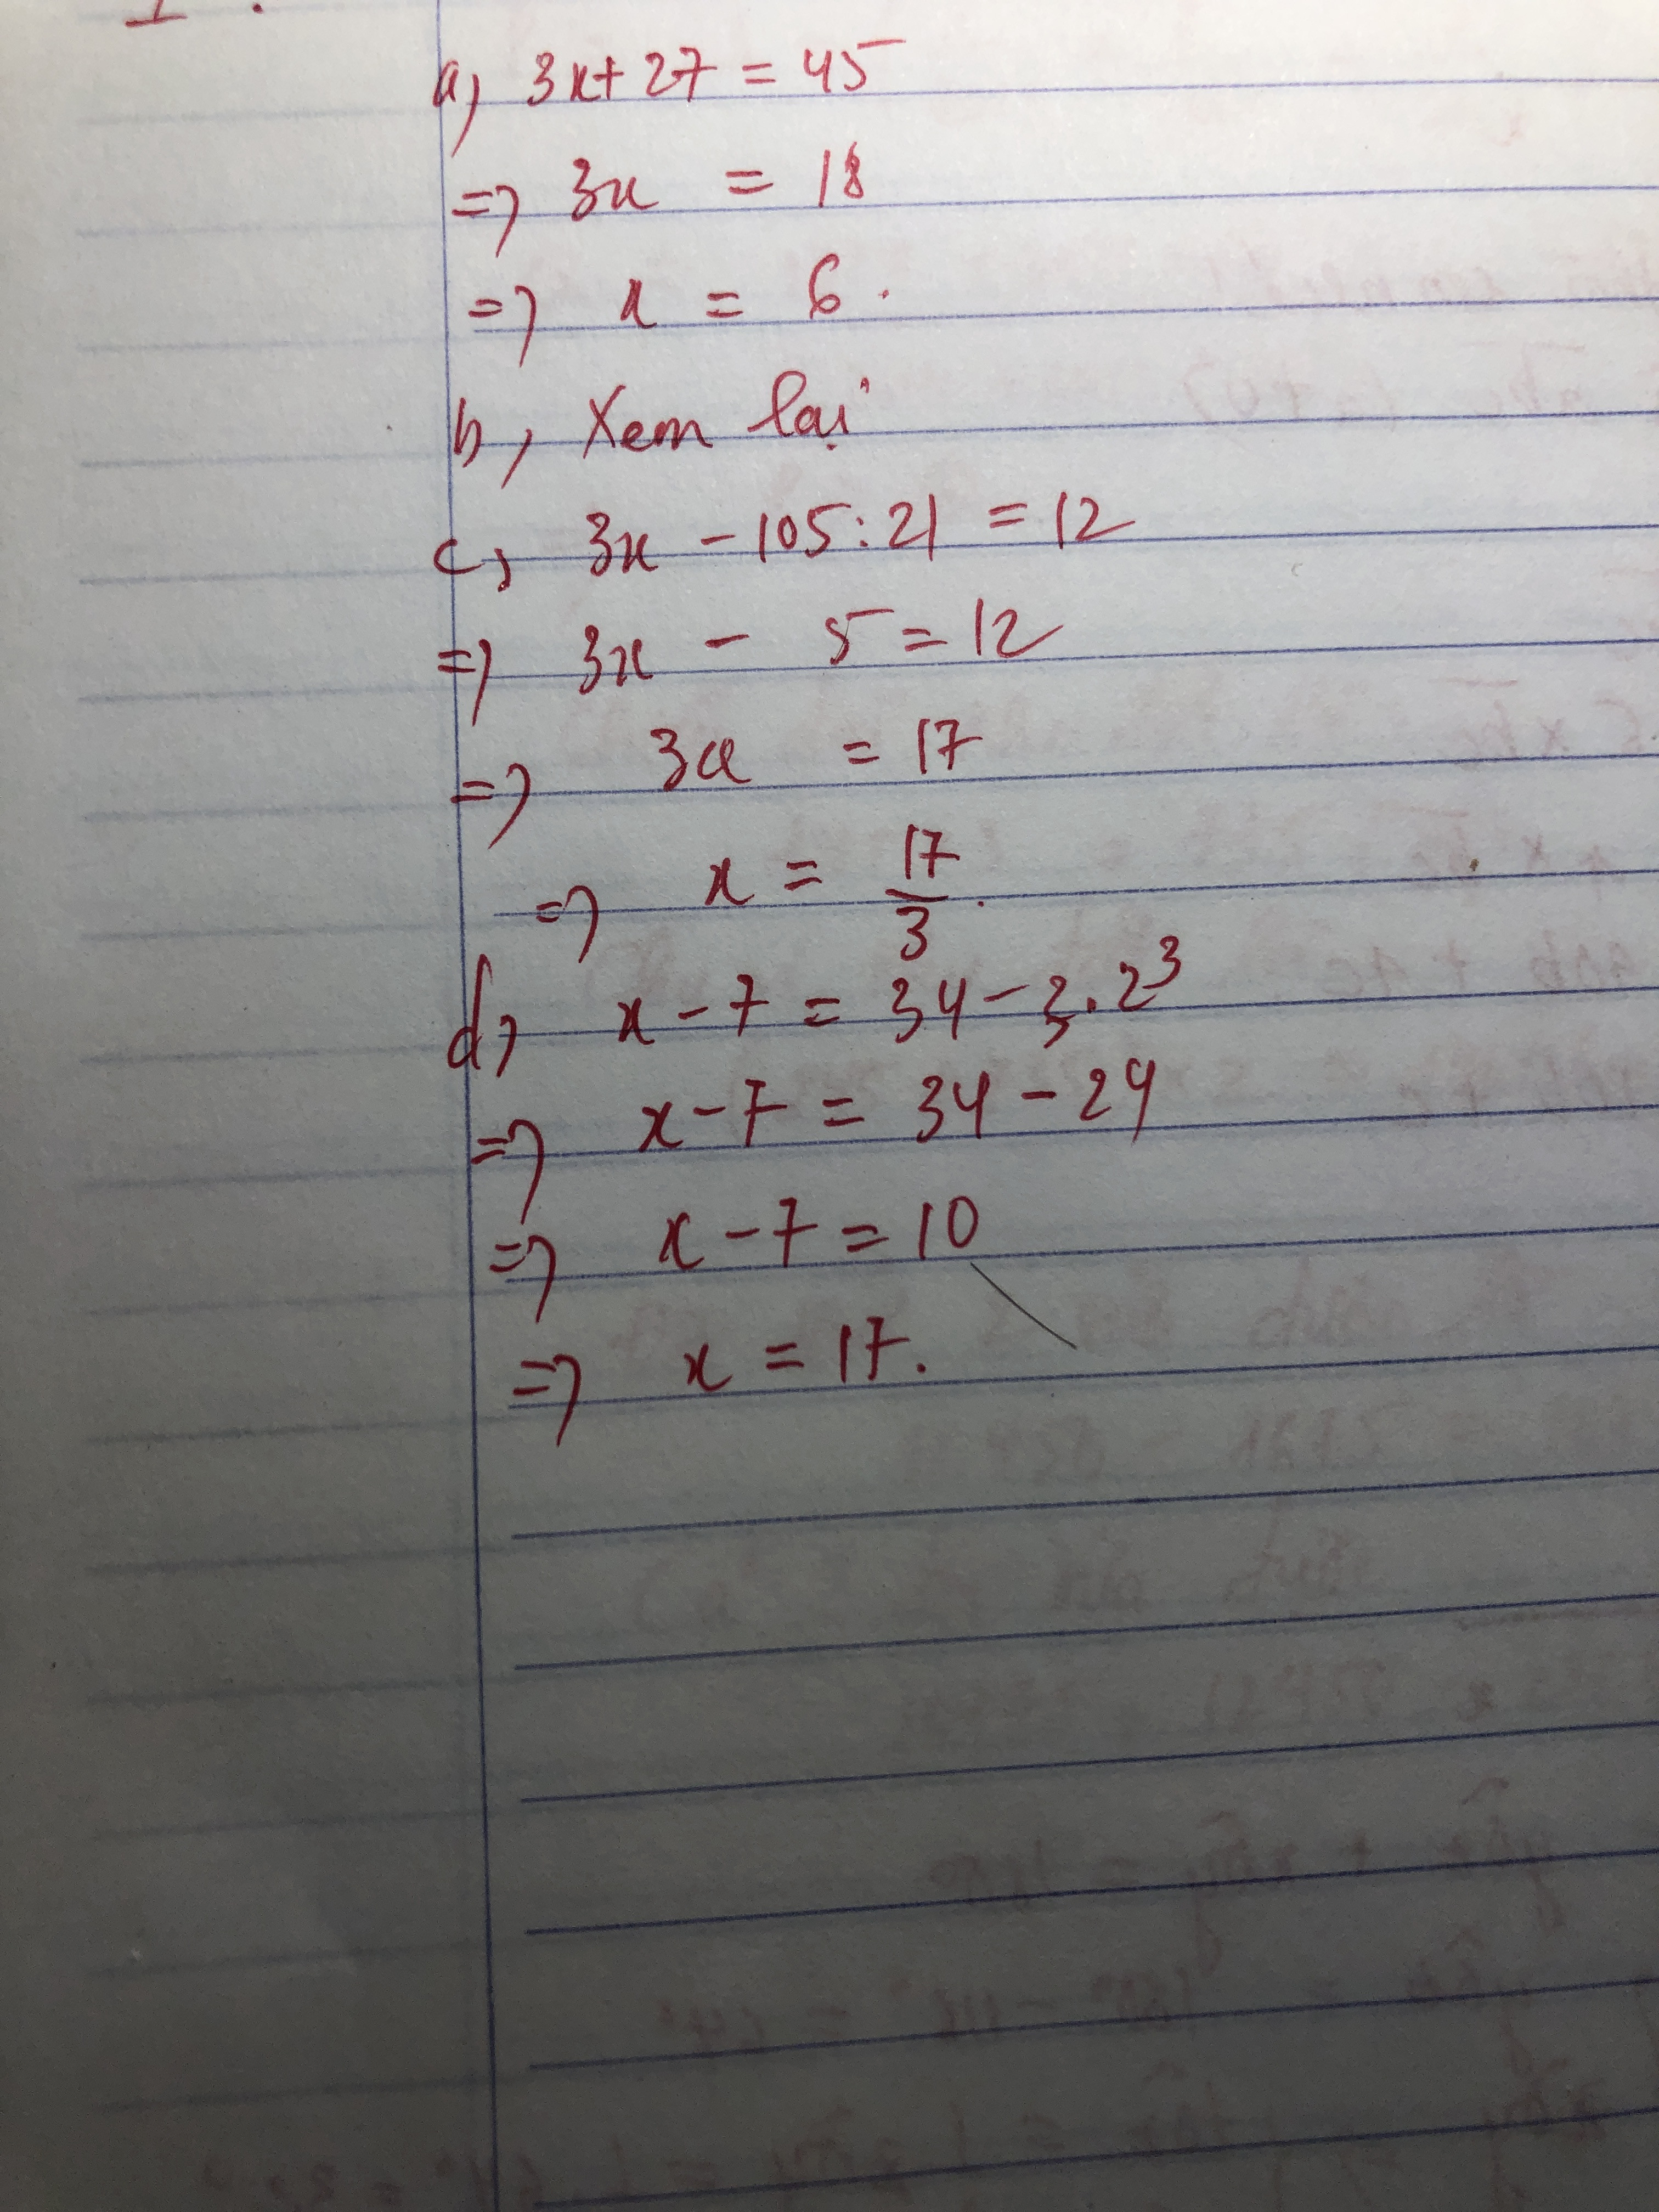 a, 3x+27 = 45
=> 3x = 18
=> x = 6.
b, Xem lại
c, 3x - 105:21 = 12
=> 3x - 5 = 12
=> 3x = 17
=> x = 17/3.
d, x - 7 = 34 - 3.2³
=> x - 7 = 34 - 24
=> x - 7 = 10
=> x = 17.